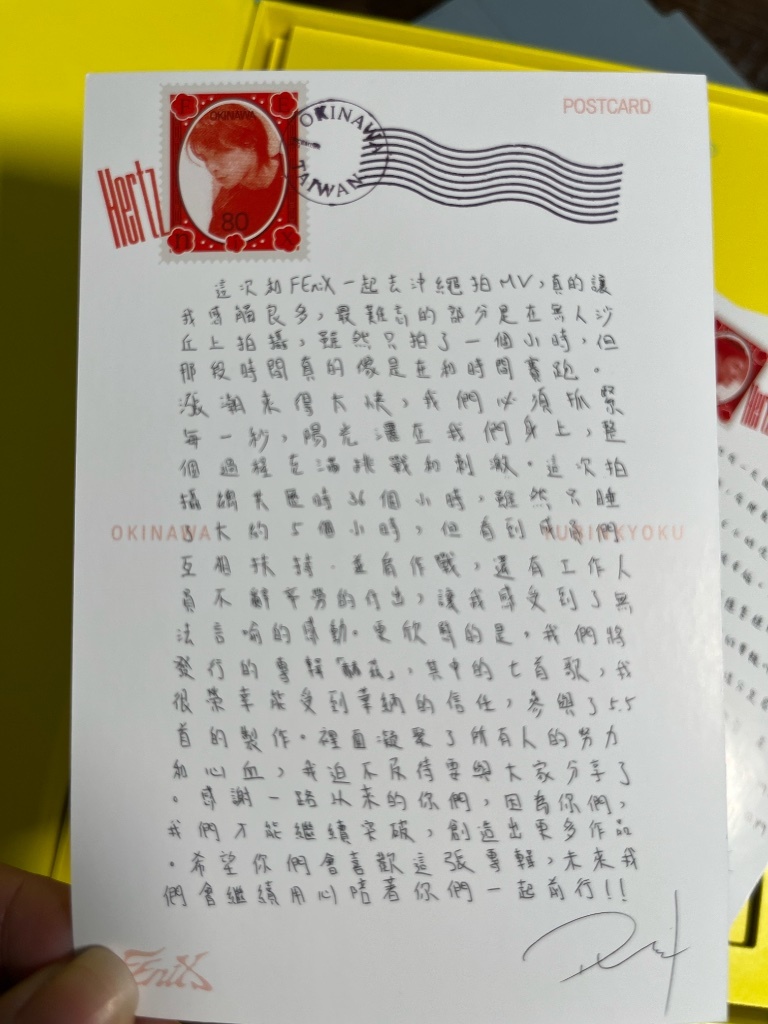 POSTCARD
OKINAWA
80
OKINAWA
TAIWAN
Hertz
這次和FEniX一起去沖繩拍MV，真的讓
我感觸良多，最難忘的部分是在無人沙
丘上拍攝，雖然只拍了一個小時，但
那段時間真的像是在和時間賽跑。
漲潮來得太快，我們必須抓緊
每一秒，陽光灑在我們身上，整
個過程充滿挑戰和刺激。這次拍
攝總共歷時36個小時，雖然只睡
了大約5個小時，但看到成員們
OKINAWA
KYOKU
互相扶持、並肩作戰，還有工作人
員不辭辛勞的付出，讓我感受到了無
法言喻的感動。更欣慰的是，我們將
發行的專輯「赫茲」，其中的七首歌，我
很榮幸能受到華納的信任，參與了5.5
首的製作。裡面凝聚了所有人的努力
和心血，我迫不及待要與大家分享了
。感謝一路以來的你們，因為你們，
我們才能繼續突破，創造出更多作品
。希望你們會喜歡這張專輯，未來我
們會繼續用心陪著你們一起前行!!
FEniX
Hertz